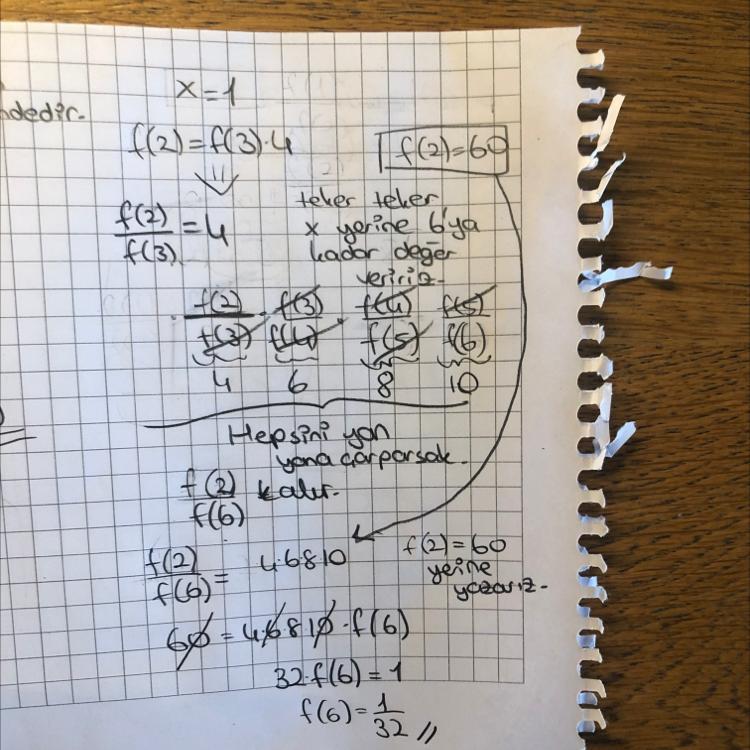 x=1
ndedir.
f(2)=f(3)·4
f(2)=60
⇓
f(2)/f(3)=4
teker teker
x yerine 6'ya
kadar değer
veririz.
f(2)/f(3) · f(3)/f(4) · f(4)/f(5) f(5)/f(6)
4 6 8 10
Hepsini yan
yana çarparsak.
f(2)/f(6) kalır.
f(2)/f(6) = 4·6·8·10
f(2)=60
yerine
yazarız.
60=4·6·8·10·f(6)
32·f(6)=1
f(6)=1/32 //